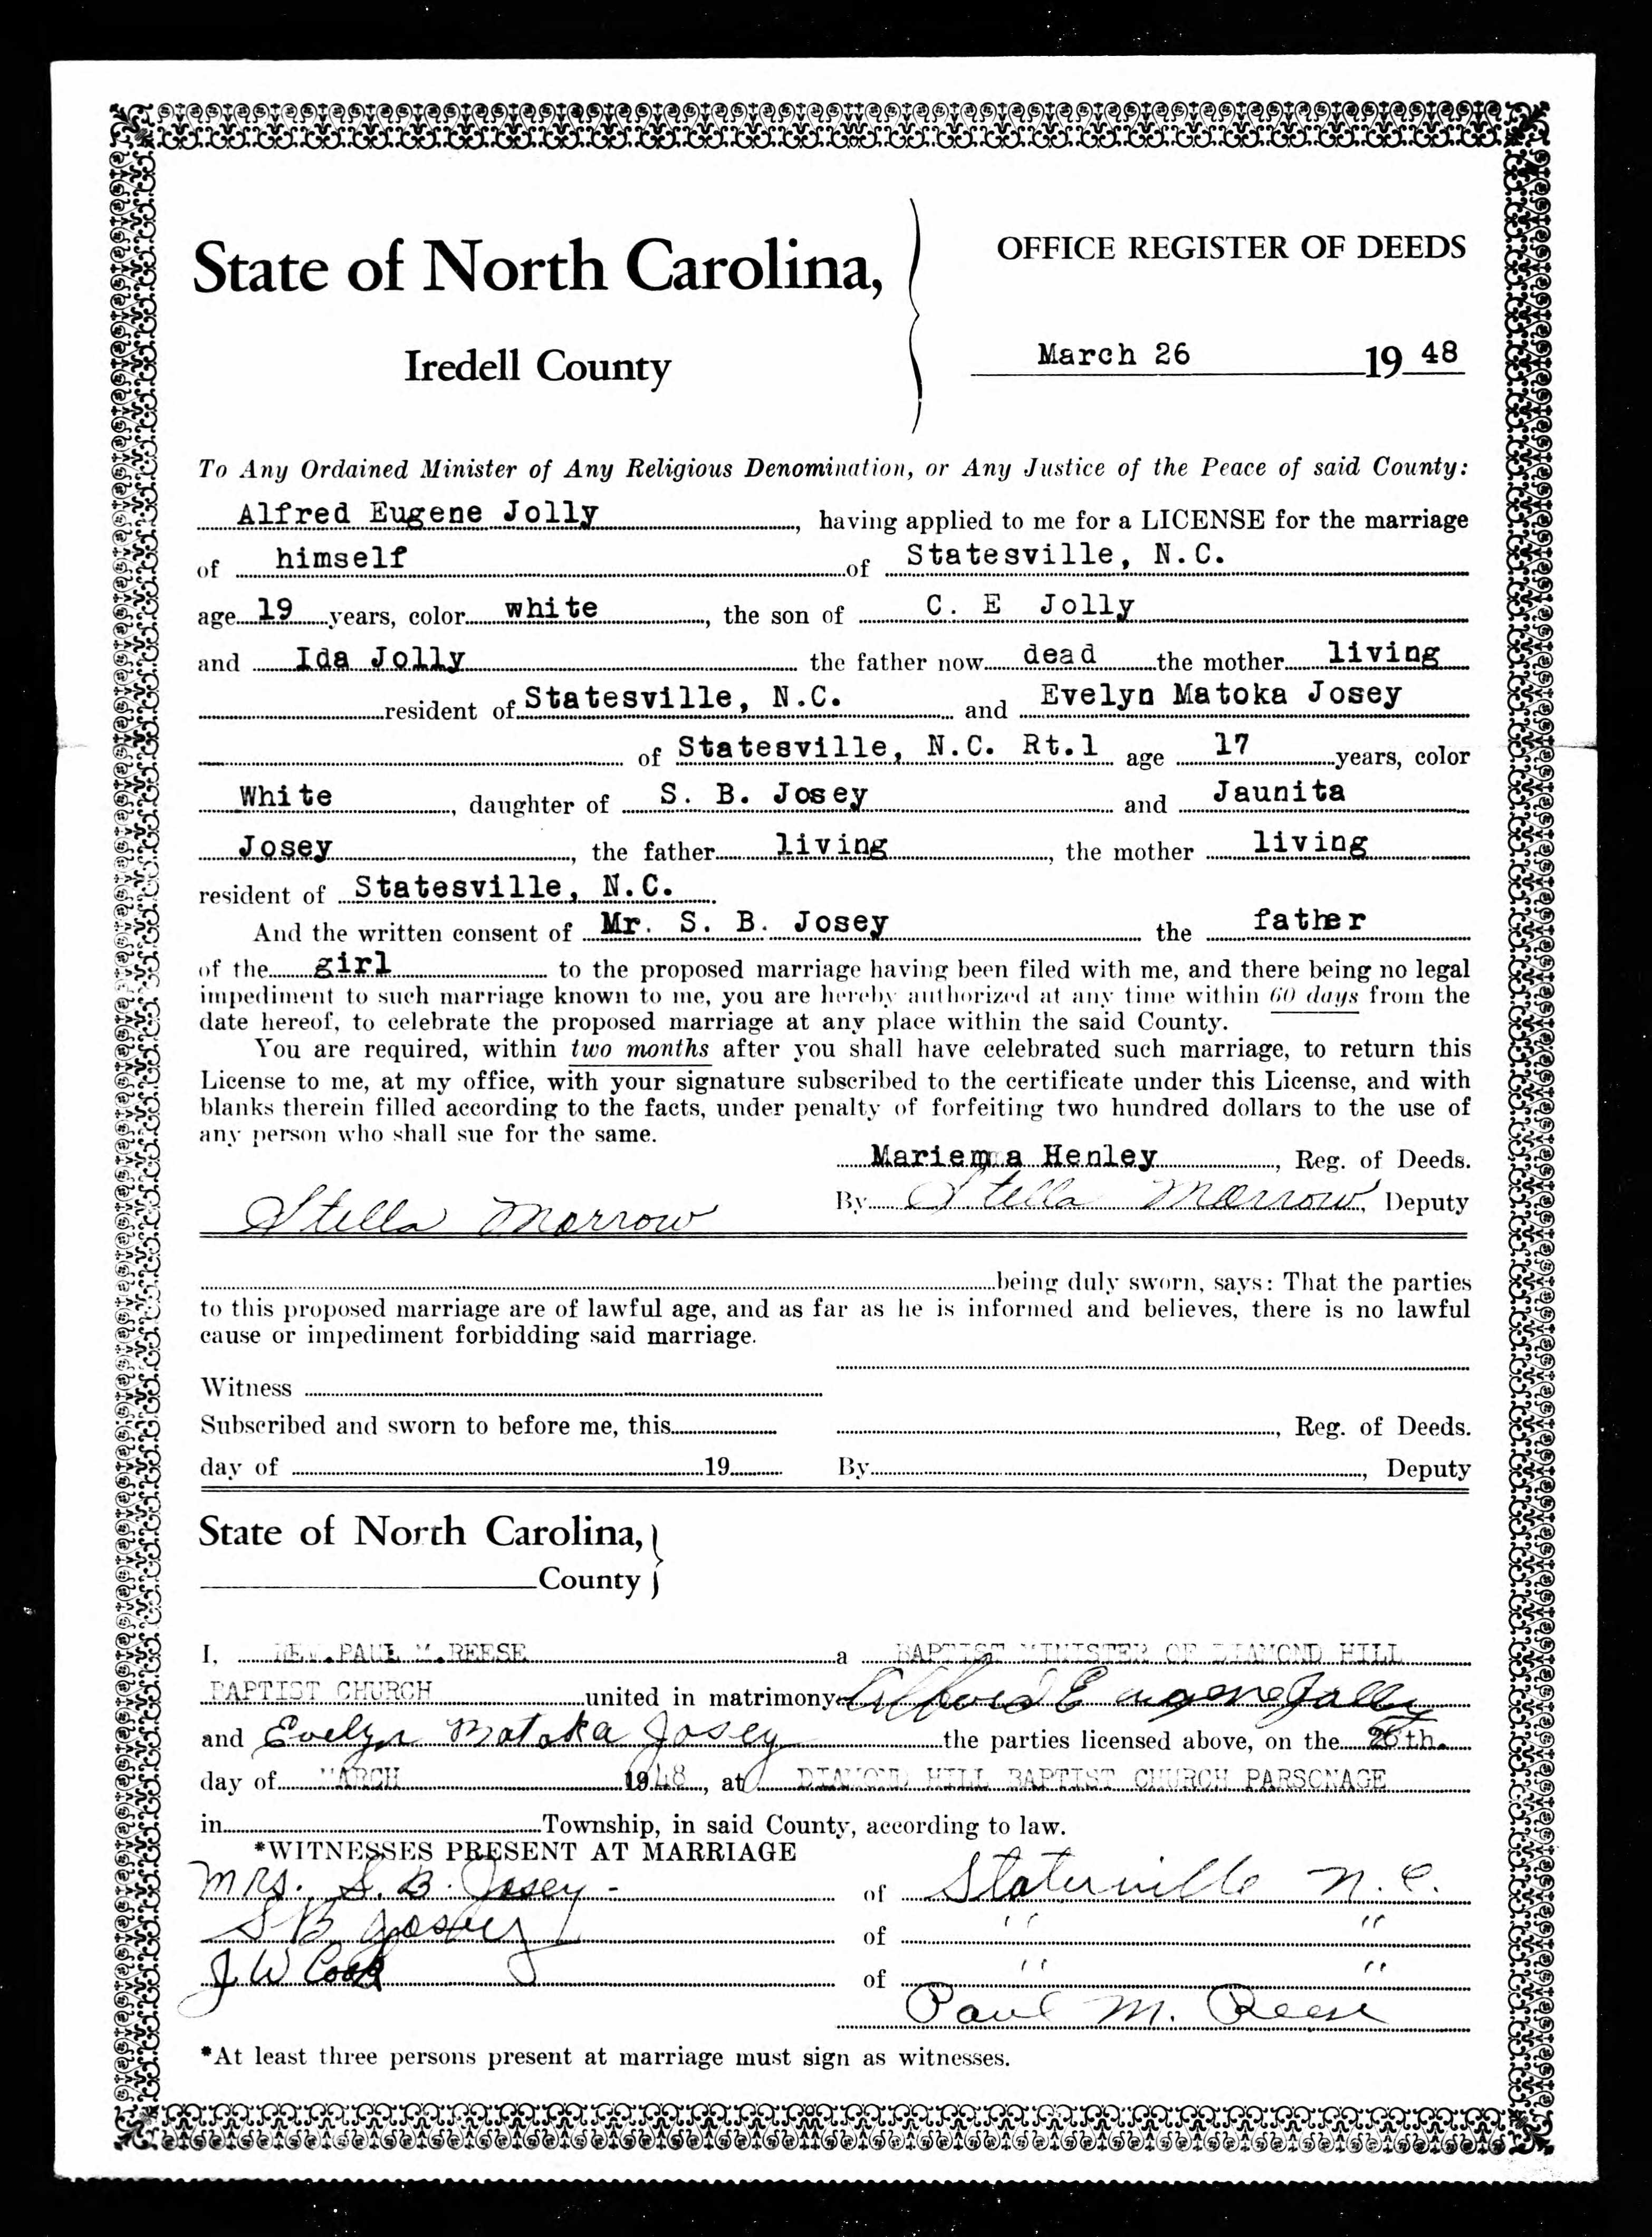 State of North Carolina,
Iredell County
OFFICE REGISTER OF DEEDS
March 26 19 48
To Any Ordained Minister of Any Religious Denomination, or Any Justice of the Peace of said County:
Alfred Eugene Jolly, having applied to me for a LICENSE for the marriage
of himself of Statesville, N.C.
age 19 years, color white, the son of C. E Jolly
and Ida Jolly the father now dead the mother living
resident of Statesville, N.C. and Evelyn Matoka Josey
of Statesville, N.C. Rt.1 age 17 years, color
White, daughter of S. B. Josey and Jaunita
Josey, the father living, the mother living
resident of Statesville, N.C.
And the written consent of Mr. S. B. Josey the father
of the girl to the proposed marriage having been filed with me, and there being no legal
impediment to such marriage known to me, you are hereby authorized at any time within 60 days from the
date hereof, to celebrate the proposed marriage at any place within the said County.
You are required, within two months after you shall have celebrated such marriage, to return this
License to me, at my office, with your signature subscribed to the certificate under this License, and with
blanks therein filled according to the facts, under penalty of forfeiting two hundred dollars to the use of
any person who shall sue for the same.
Mariemma Henley, Reg. of Deeds.
Stella Morrow By Stella Morrow, Deputy
being duly sworn, says: That the parties
to this proposed marriage are of lawful age, and as far as he is informed and believes, there is no lawful
cause or impediment forbidding said marriage.
Witness
Subscribed and sworn to before me, this , Reg. of Deeds.
day of 19 By , Deputy
State of North Carolina,
County
I, REV. PAUL M. REESE a BAPTIST MINISTER OF DIAMOND HILL
BAPTIST CHURCH united in matrimony Alfred Eugene Jolly
and Evelyn Matoka Josey the parties licensed above, on the 26th.
day of MARCH 1948, at DIAMOND HILL BAPTIST CHURCH PARSONAGE
in Township, in said County, according to law.
*WITNESSES PRESENT AT MARRIAGE
Mrs. S. B. Josey - of Statesville N. C.
S B Josey of " "
J W Cook of " "
Paul M. Reese
*At least three persons present at marriage must sign as witnesses.